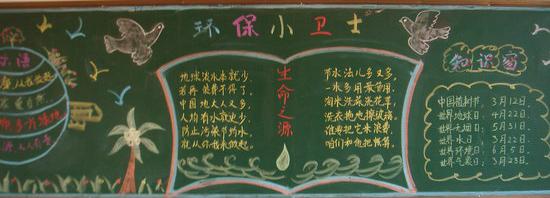 环保小卫士
地球淡水本就少,
若再浪费不得了。
中国地大人又多,
人均有水就更少,
防止污染节约水,
就从你我来做起。
生命之源
节水法儿多又多,
一水多用最管用。
淘米洗菜洗花草,
洗衣拖地擦玻璃。
谁要把它来浪费,
咱们和他把账算。
知识窗
中国植树节: 3月12日。
世界地球日: 4月22日。
世界无烟日: 5月31日。
世界水日: 3月22日。
世界环境日: 6月5日。
世界气象日: 3月23日。